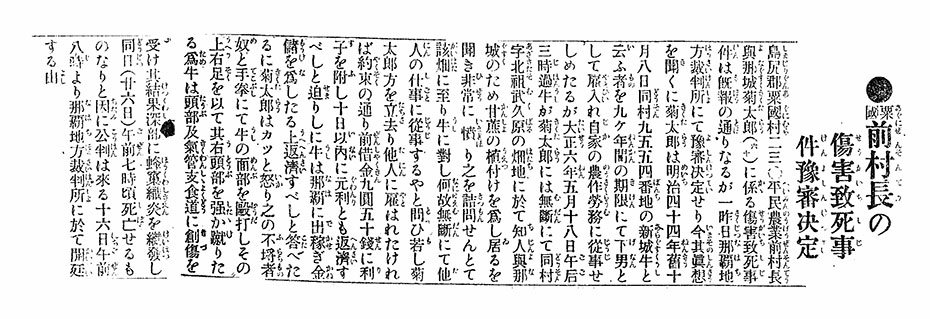 ●粟國前村長の
傷害致死事
件豫審決定
島尻郡粟國村二三〇平民農業前村長
與那城菊太郎に係る傷害致死事
件は既報の通りなるが一昨日那覇地
方裁判所にて豫審決定せり今其眞想
を聞くに菊太郎は明治四十四年舊十
月八日同村九五五四番地の新城牛と
云ふ者を九ケ年間の期限にて下男と
して雇入れ自家の農作勞務に從事せ
しめたるが大正六年五月十八日午后
三時過牛が菊太郎には無斷にて同村
字北祖武久原の畑地に於て知人與那
城のため甘蔗の植付けを爲し居るを
聞き非常に憤り之を詰問せんとて
該畑に至り牛に對し何故無斷にて他
人の仕事に從事するやと問ひ若し菊
太郎方を立去り他人に雇はれたけれ
ば約束の通り前借金九圓五十錢に利
子を附し十日以內に元利とも返濟す
べしと迫りしに牛は那覇に出稼ぎ金
儲を爲したる上返濟すべしと答へた
るに菊太郎はカツと怒り之の不埒者
奴と手拳にて牛の面部を毆打しその
上右足を以て其右頭部を强か蹴りた
る爲牛は頭部及氣管支食道に創傷を
受け其結果深部に蜂窠織炎を繼發し
同日(廿六日)午前七時頃死亡せるも
のなりと因に公判は來る十六日午前
八時より那覇地方裁判所に於て開廷
する由